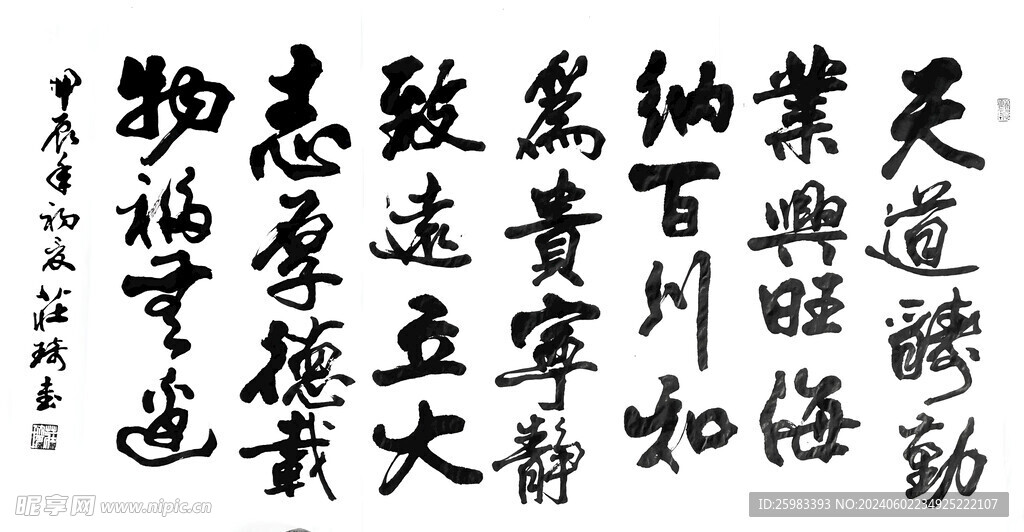 天道醻勤
業興旺海
納百川和
爲貴寧靜
致遠立大
志厚德載
物福無邊
甲辰年初夏莊琦書
昵享网 www.nipic.cn
ID:25983393 NO:20240602234925222107